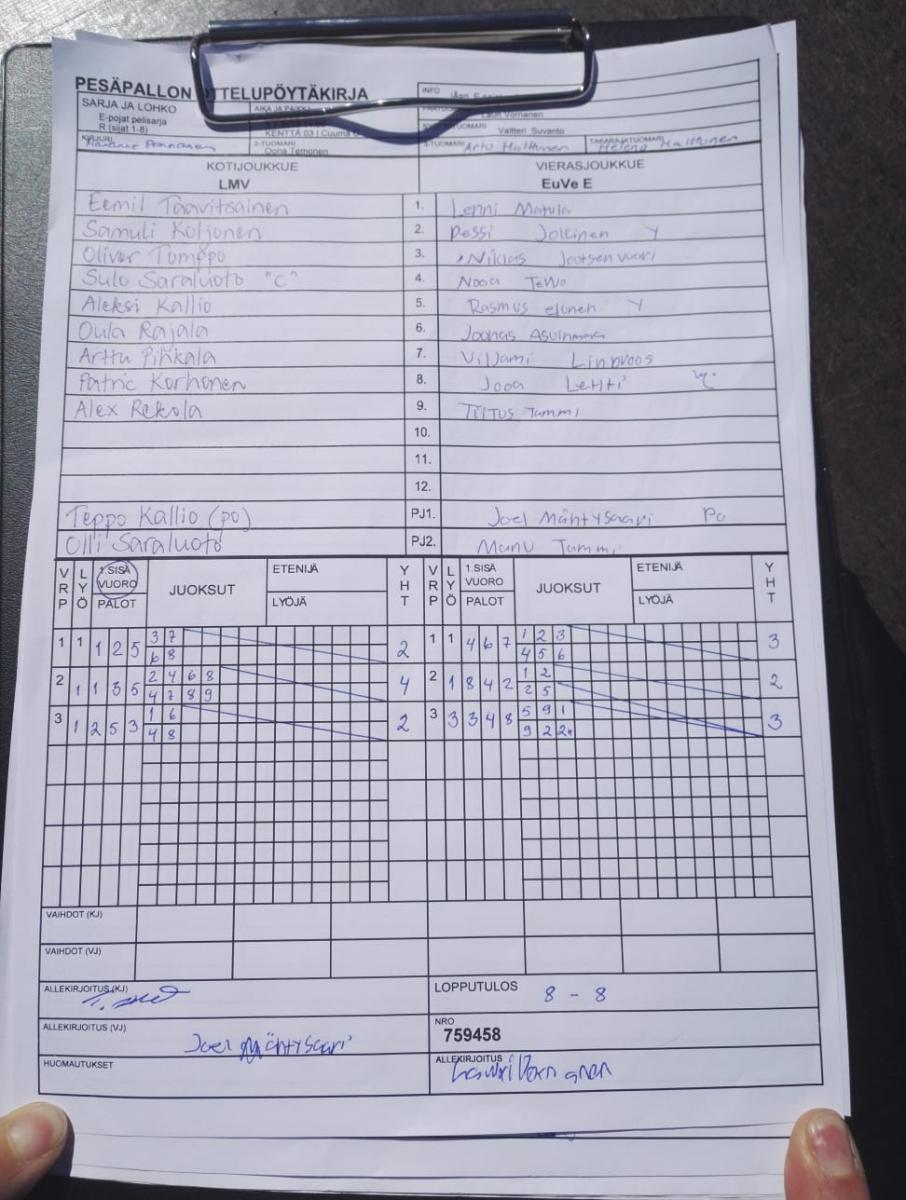 PESÄPALLON OTTELUPÖYTÄKIRJA
INFO
SARJA JA LOHKO
E-pojat pelisarja
R (sijat 1-8)
AIKA JA PAIKKA
KENTTÄ 03 | Cuuma
Lauri Vornanen
Valtteri Suvanto
KIRJURI
2-TUOMARI
Oona Temonen
3-TUOMARI Arto Halttunen
TAKARAJATUOMARI Helena Halttunen
KOTIJOUKKUE
LMV
VIERASJOUKKUE
EuVe E
Eemil Taavitsainen 1. Lenni Matula
Samuli Koljonen 2. Pessi Jokinen Y
Oliver Tomppo 3. Niklas Joutsenvuori
Sulo Saraluoto "C" 4. Nooa
Aleksi Kallio 5. Rasmus Y
Oula Rajala 6. Joonas
Arttu Pihkala 7. Viljami
Patric Korhonen 8. Jooa Lehti
Alex Rekola 9. Tiitus Tammi
10.
11.
12.
Teppo Kallio (po) PJ1. Joel Mäntysaari Po
Olli Saraluoto PJ2. Manu Tammi
VRP LYÖ 1.SISÄ VUORO PALOT JUOKSUT ETENIJÄ LYÖJÄ YHT VRP LYÖ 1.SISÄ VUORO PALOT JUOKSUT ETENIJÄ LYÖJÄ YHT
1 1 1 2 5 3 7 2 1 1 4 6 7 1 2 3 3
6 8 4 5 6
2 1 1 3 5 2 4 6 8 4 2 1 8 4 2 1 2 2
4 7 8 9 2 5
3 1 2 5 3 1 6 2 3 3 3 4 8 5 9 1 3
4 8 9 2 2
VAIHDOT (KJ)
VAIHDOT (VJ)
ALLEKIRJOITUS (KJ)
LOPPUTULOS 8 - 8
ALLEKIRJOITUS (VJ) Joel Mäntysaari
NRO
759458
HUOMAUTUKSET
ALLEKIRJOITUS Lauri Vornanen